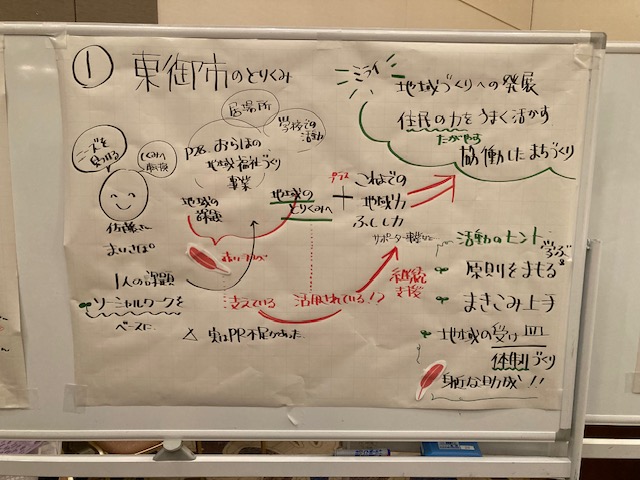 ① 東御市のとりくみ
居場所
学校での
活動
ニーズを
見つける
しくみへ
転換
P28 おらほの
地域福祉づくり
事業
佐藤さん
まいさぽ
1人の課題
ソーシャルワークを
ベースに
地域の
課題
赤い羽根
地域の
とりくみへ
支えている
活用されている!?
△ 実はPR不足があった
＋
プラス
これまでの
地域力
ふくし力
サポーター事業など…
継続
支援
ミライ
地域づくりへの発展
住民の力をうまく活かす
たがやす
協働したまちづくり
活動のヒント
原則をまもる
まきこみ上手
地域の受け皿
体制づくり
身近な助成!!